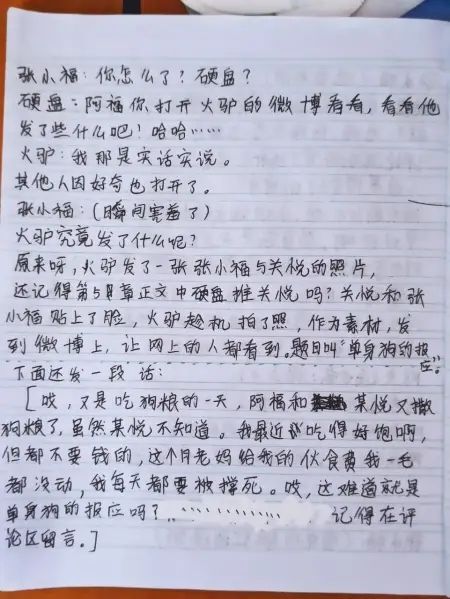 张小福：你怎么了？硬盘？
硬盘：阿福你打开火驴的微博看看，看看他
发了些什么吧！哈哈……
火驴：我那是实话实说。
其他人因好奇也打开了。
张小福：（瞬间害羞了）
火驴究竟发了什么呢？
原来呀，火驴发了一张张小福与关悦的照片，
还记得第5章正文中硬盘推关悦吗？关悦和张
小福贴上了脸，火驴趁机拍了照，作为素材，发
到微博上，让网上的人都看到。题目叫“单身狗的报应”。
下面还发一段话：
[哎，又是吃狗粮的一天，阿福和某悦又撒
狗粮了，虽然某悦不知道。我最近吃得好饱啊，
但都不要钱的，这个月老妈给我的伙食费我一毛
都没动，我每天都要被撑死。哎，这难道就是
单身狗的报应吗？………… 记得在评
论区留言。]